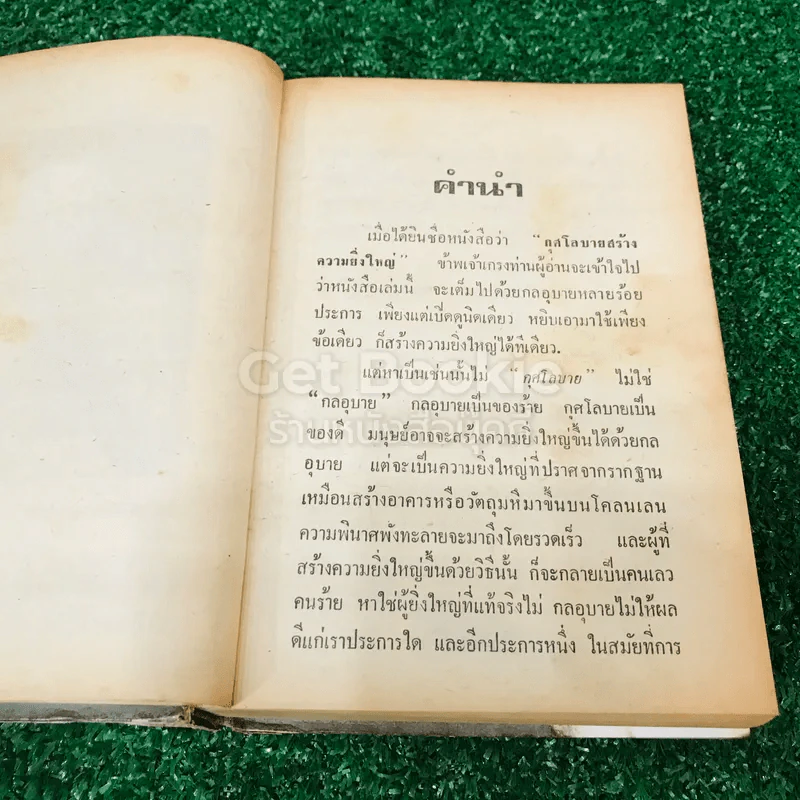 คำนำ
เมื่อได้ยินชื่อหนังสือว่า "กุศโลบายสร้าง
ความยิ่งใหญ่" ข้าพเจ้าเกรงท่านผู้อ่านจะเข้าใจไป
ว่าหนังสือเล่มนี้ จะเต็มไปด้วยกลอุบายหลายร้อย
ประการ เพียงแต่เปิดดูนิดเดียว หยิบเอามาใช้เพียง
ข้อเดียว ก็สร้างความยิ่งใหญ่ได้ทีเดียว.
แต่หาเป็นเช่นนั้นไม่ "กุศโลบาย" ไม่ใช่
"กลอุบาย" กลอุบายเป็นของร้าย กุศโลบายเป็น
ของดี มนุษย์อาจจะสร้างความยิ่งใหญ่ขึ้นได้ด้วยกล
อุบาย แต่จะเป็นความยิ่งใหญ่ที่ปราศจากรากฐาน
เหมือนสร้างอาคารหรือวัตถุมหึมาขึ้นบนโคลนเลน
ความพินาศพังทะลายจะมาถึงโดยรวดเร็ว และผู้ที่
สร้างความยิ่งใหญ่ขึ้นด้วยวิธีนั้น ก็จะกลายเป็นคนเลว
คนร้าย หาใช่ผู้ยิ่งใหญ่ที่แท้จริงไม่ กลอุบายไม่ให้ผล
ดีแก่เราประการใด และอีกประการหนึ่ง ในสมัยที่การ
Get Bookie
ร้านหนังสือมุกดา